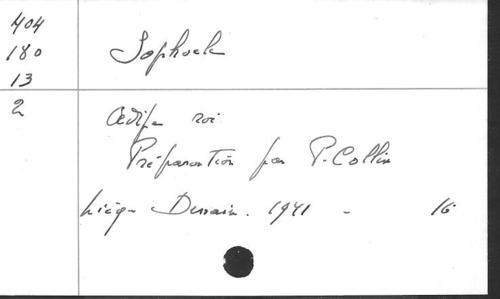 404
180
13
2
Sophocle
Œdipe roi
Préparation par P. Collin
Liège - Dessain. 1941 - 16